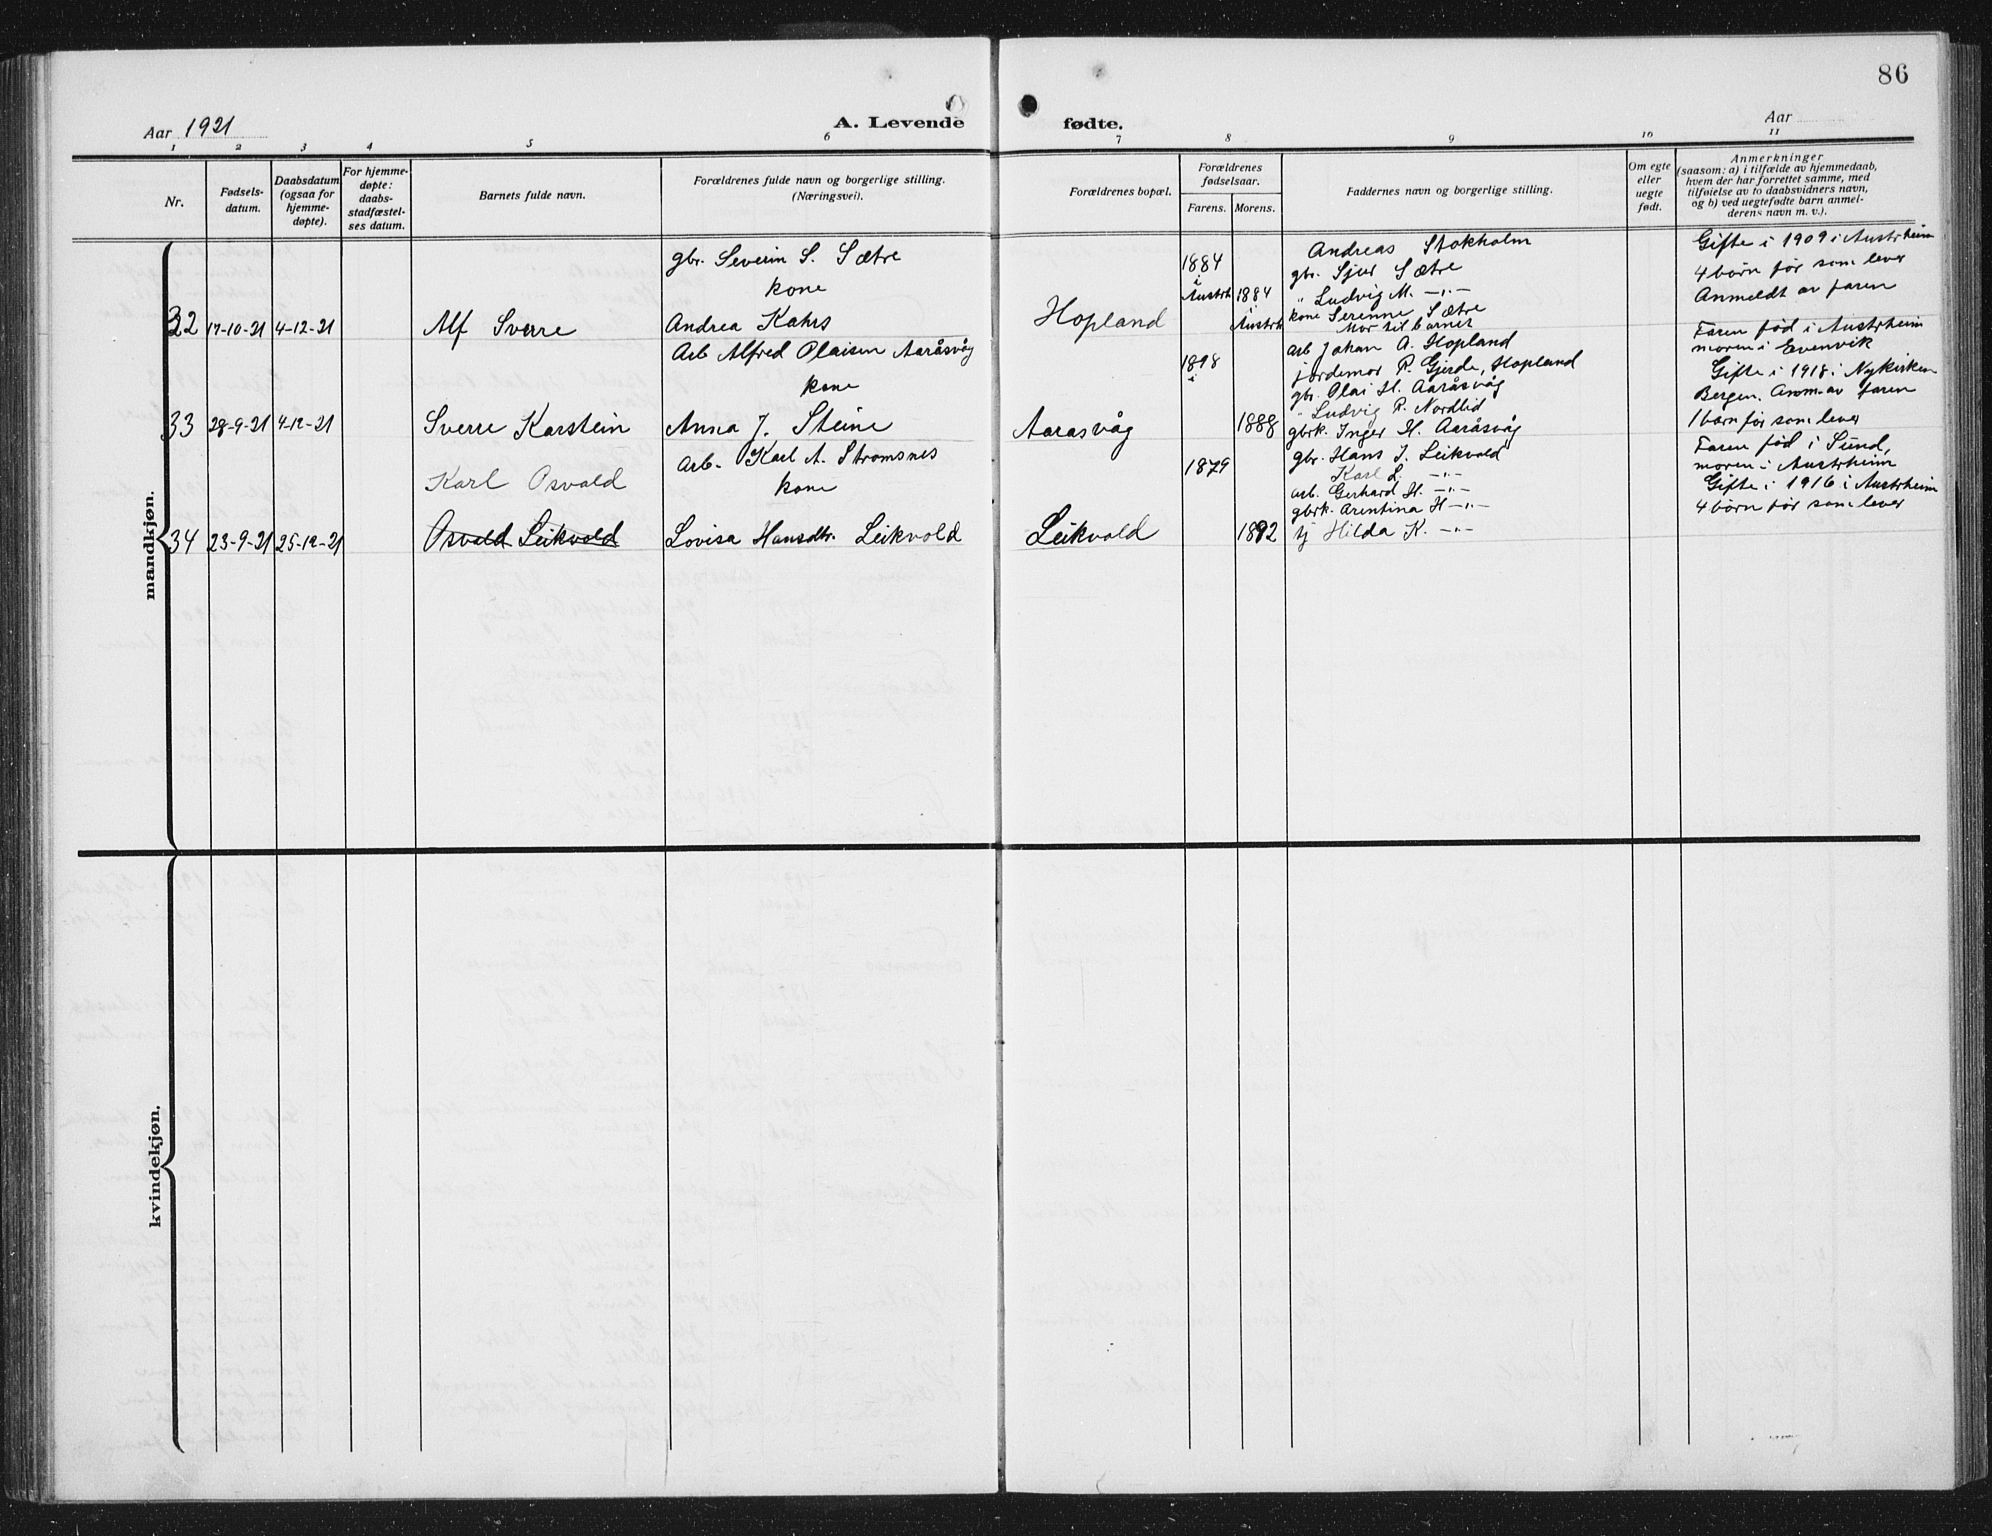 86
Aar 1921
A. Levende
fødte.
Aar
1 2 3 4 5 6 7 8 9 10 11
Nr.
Fødsels-
datum.
Daabsdatum
(ogsaa for
hjemme-
døpte).
For hjemme-
døpte:
daabs-
stadfæstel-
ses datum.
Barnets fulde navn.
Forældrenes fulde navn og borgerlige stilling.
(Næringsvei).
Forældrenes bopæl.
Forældrenes
fødselsaar.
Farens. Morens.
Faddernes navn og borgerlige stilling.
Om egte
eller
uegte
født.
Anmerkninger
(saasom: a) i tilfælde av hjemmedaab,
hvem der har forrettet samme, med
tilføielse av to daabsvidners navn,
og b) ved uegtefødte barn anmel-
derens navn m. v.).
mandkjøn.
32 17-10-21 4-12-21
Alf Sverre
gbr. Severin S. Sætre
kone
Andrea Kahrs
Hopland
1884
i
Austrh
1884
i
Austrh
Andreas Stokholm
gbr. Sjur Sætre
" Ludvig M. -"-
kone Serenne Sætre
Mor til barnet
Gifte i 1909 i Austrheim
4 børn før som lever
Anmeldt av faren
33 28-9-21 4-12-21
Sverre Karstein
Arb Alfred Olaisen Aaråsvåg
kone
Anna J. Steine
Aarasvåg
1898
i
1888
arb Johan A. Hopland
jordemor P. Gjerde, Hopland
gbr. Olai H. Aaråsvåg
" Ludvig P. Nordlid
gbrk. Inger H. Aaråsvåg
Faren fød i Austrheim
moren i Evenvik
Gifte i 1918 i Nykirken
Bergen. Anm av faren
1 barn før som lever
34 23-9-21 25-12-21
Karl Osvald
Osvald Leikvold
Arb. Karl A. Stromsnes
kone
Lovisa Hansdtr. Leikvold
Leikvold
1879
1892
gbr. Hans J. Leikvold
Karl L. -"-
arb. Gerhard H. -"-
gbrk. Arentina H -"-
tj Hilda K. -"-
Faren fød i Sund,
moren i Austrheim
Gifte i 1916 i Austrheim
4 børn før som lever
kvindekjøn.